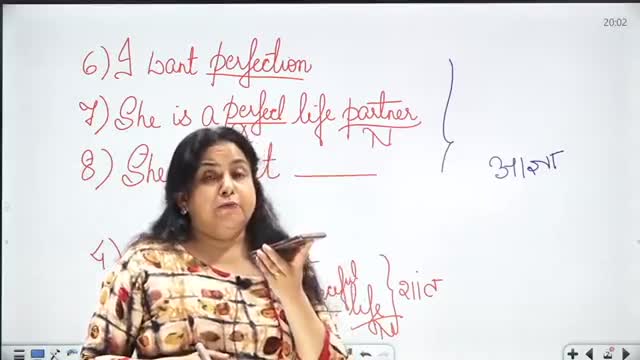 20:02
6) I want perfection
7) She is a perfect life partner
N
8) She t ______
आशा
4)
ful
life } शांत
N